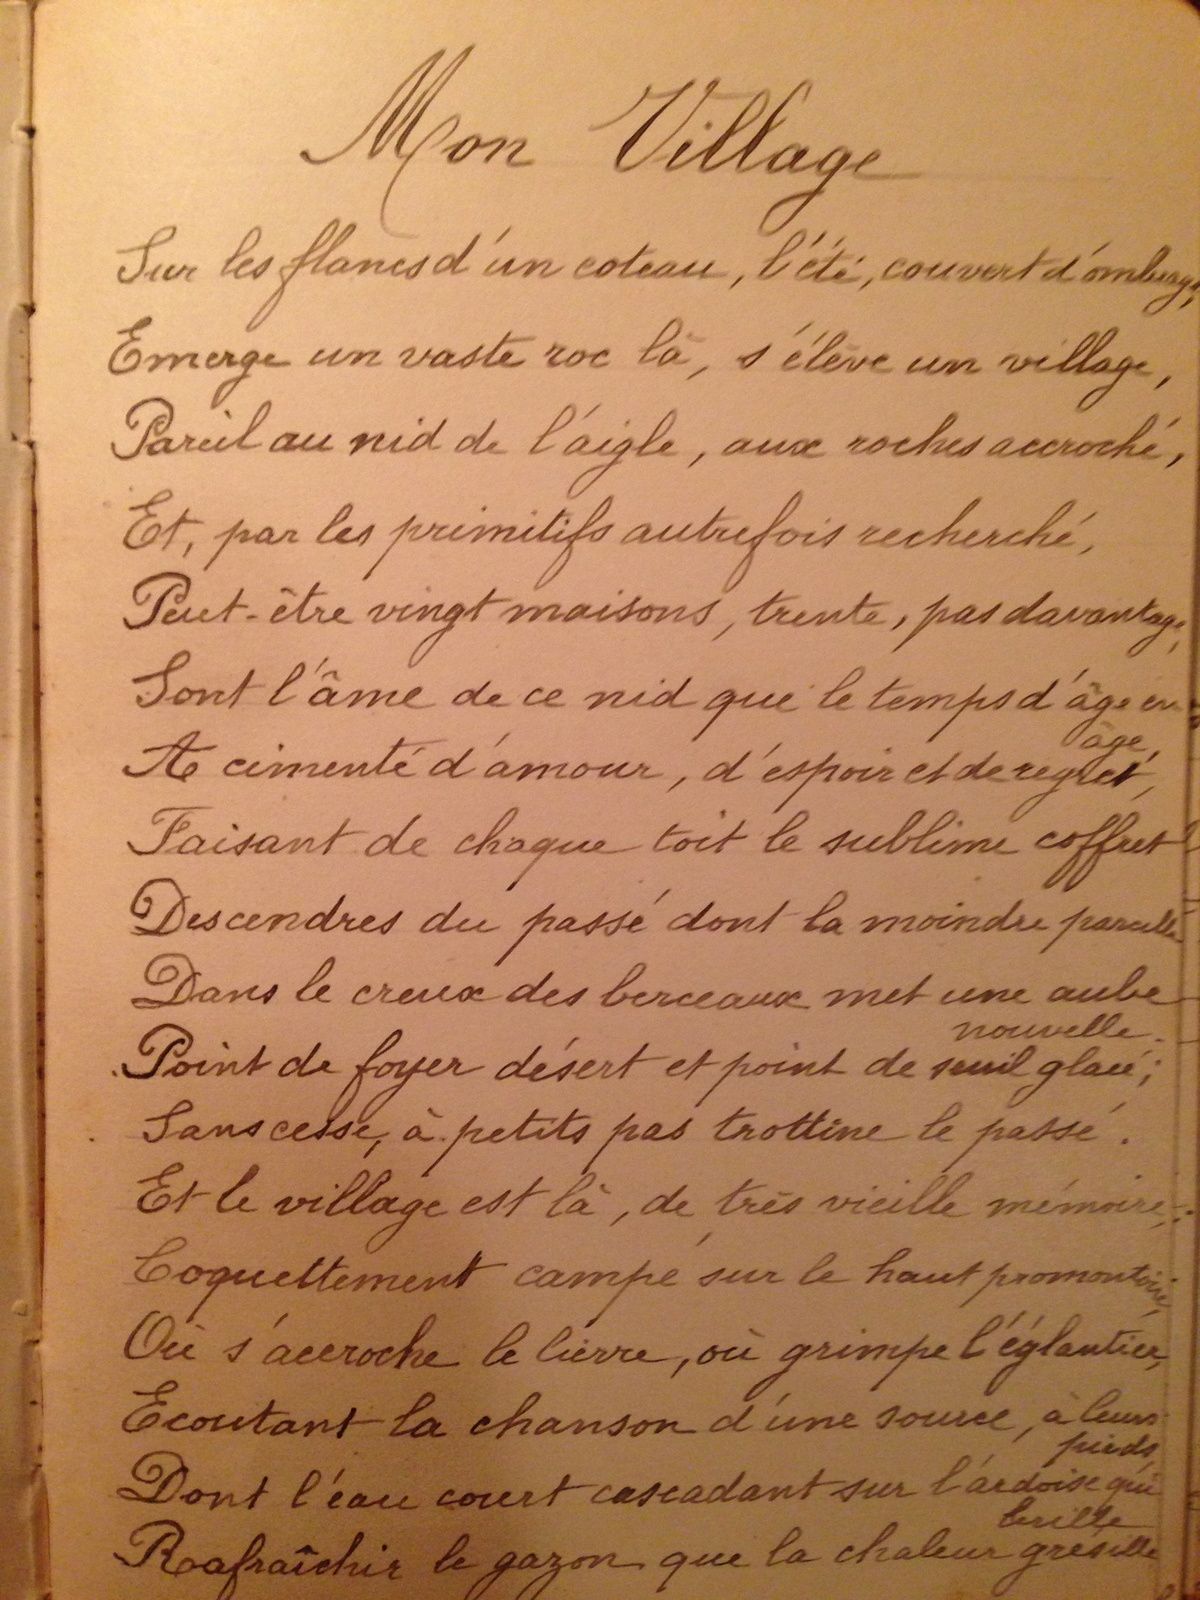 Mon Village
Sur les flancs d'un coteau, l'été, couvert d'ombrage,
Emerge un vaste roc là, s'élève un village,
Pareil au nid de l'aigle, aux roches accroché,
Et, par les primitifs autrefois recherché,
Peut-être vingt maisons, trente, pas davantage,
Sont l'âme de ce nid que le temps d'âge en
âge,
A cimenté d'amour, d'espoir et de regret,
Faisant de chaque toit le sublime coffret
Descendres du passé dont la moindre parcelle
Dans le creux des berceaux met une aube
nouvelle.
Point de foyer désert et point de seuil glacé;
Sans cesse, à petits pas trottine le passé.
Et le village est là, de très vieille mémoire,
Coquettement campé sur le haut promontoire,
Où s'accroche le lierre, où grimpe l'églantier,
Ecoutant la chanson d'une source, à leurs
pieds,
Dont l'eau court cascadant sur l'ardoise qui
brille
Rafraîchir le gazon que la chaleur grésille